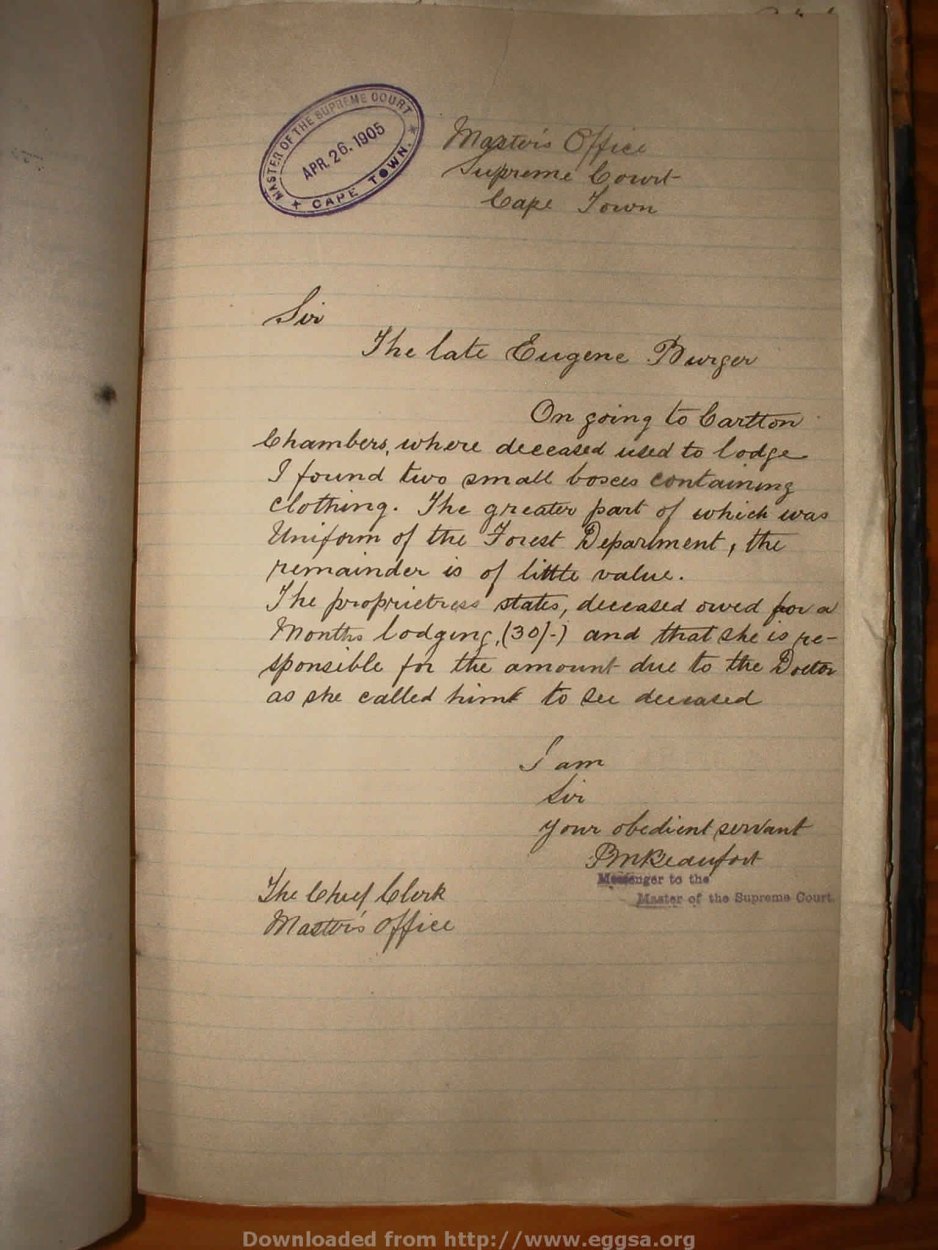 MASTER OF THE SUPREME COURT
APR. 26. 1905
CAPE TOWN.
Master's Office
Supreme Court
Cape Town
Sir
The late Eugene Burger
On going to Cartton
Chambers, where deceased used to lodge
I found two small boxes containing
clothing. The greater part of which was
Uniform of the Forest Department, the
remainder is of little value.
The proprietress states, deceased owed for a
Months lodging, (30/-) and that she is re-
sponsible for the amount due to the Doctor
as she called him to see deceased
I am
Sir
your obedient servant
Beaufort
Messenger to the
Master of the Supreme Court.
The Chief Clerk
Master's Office
Downloaded from http://www.eggsa.org